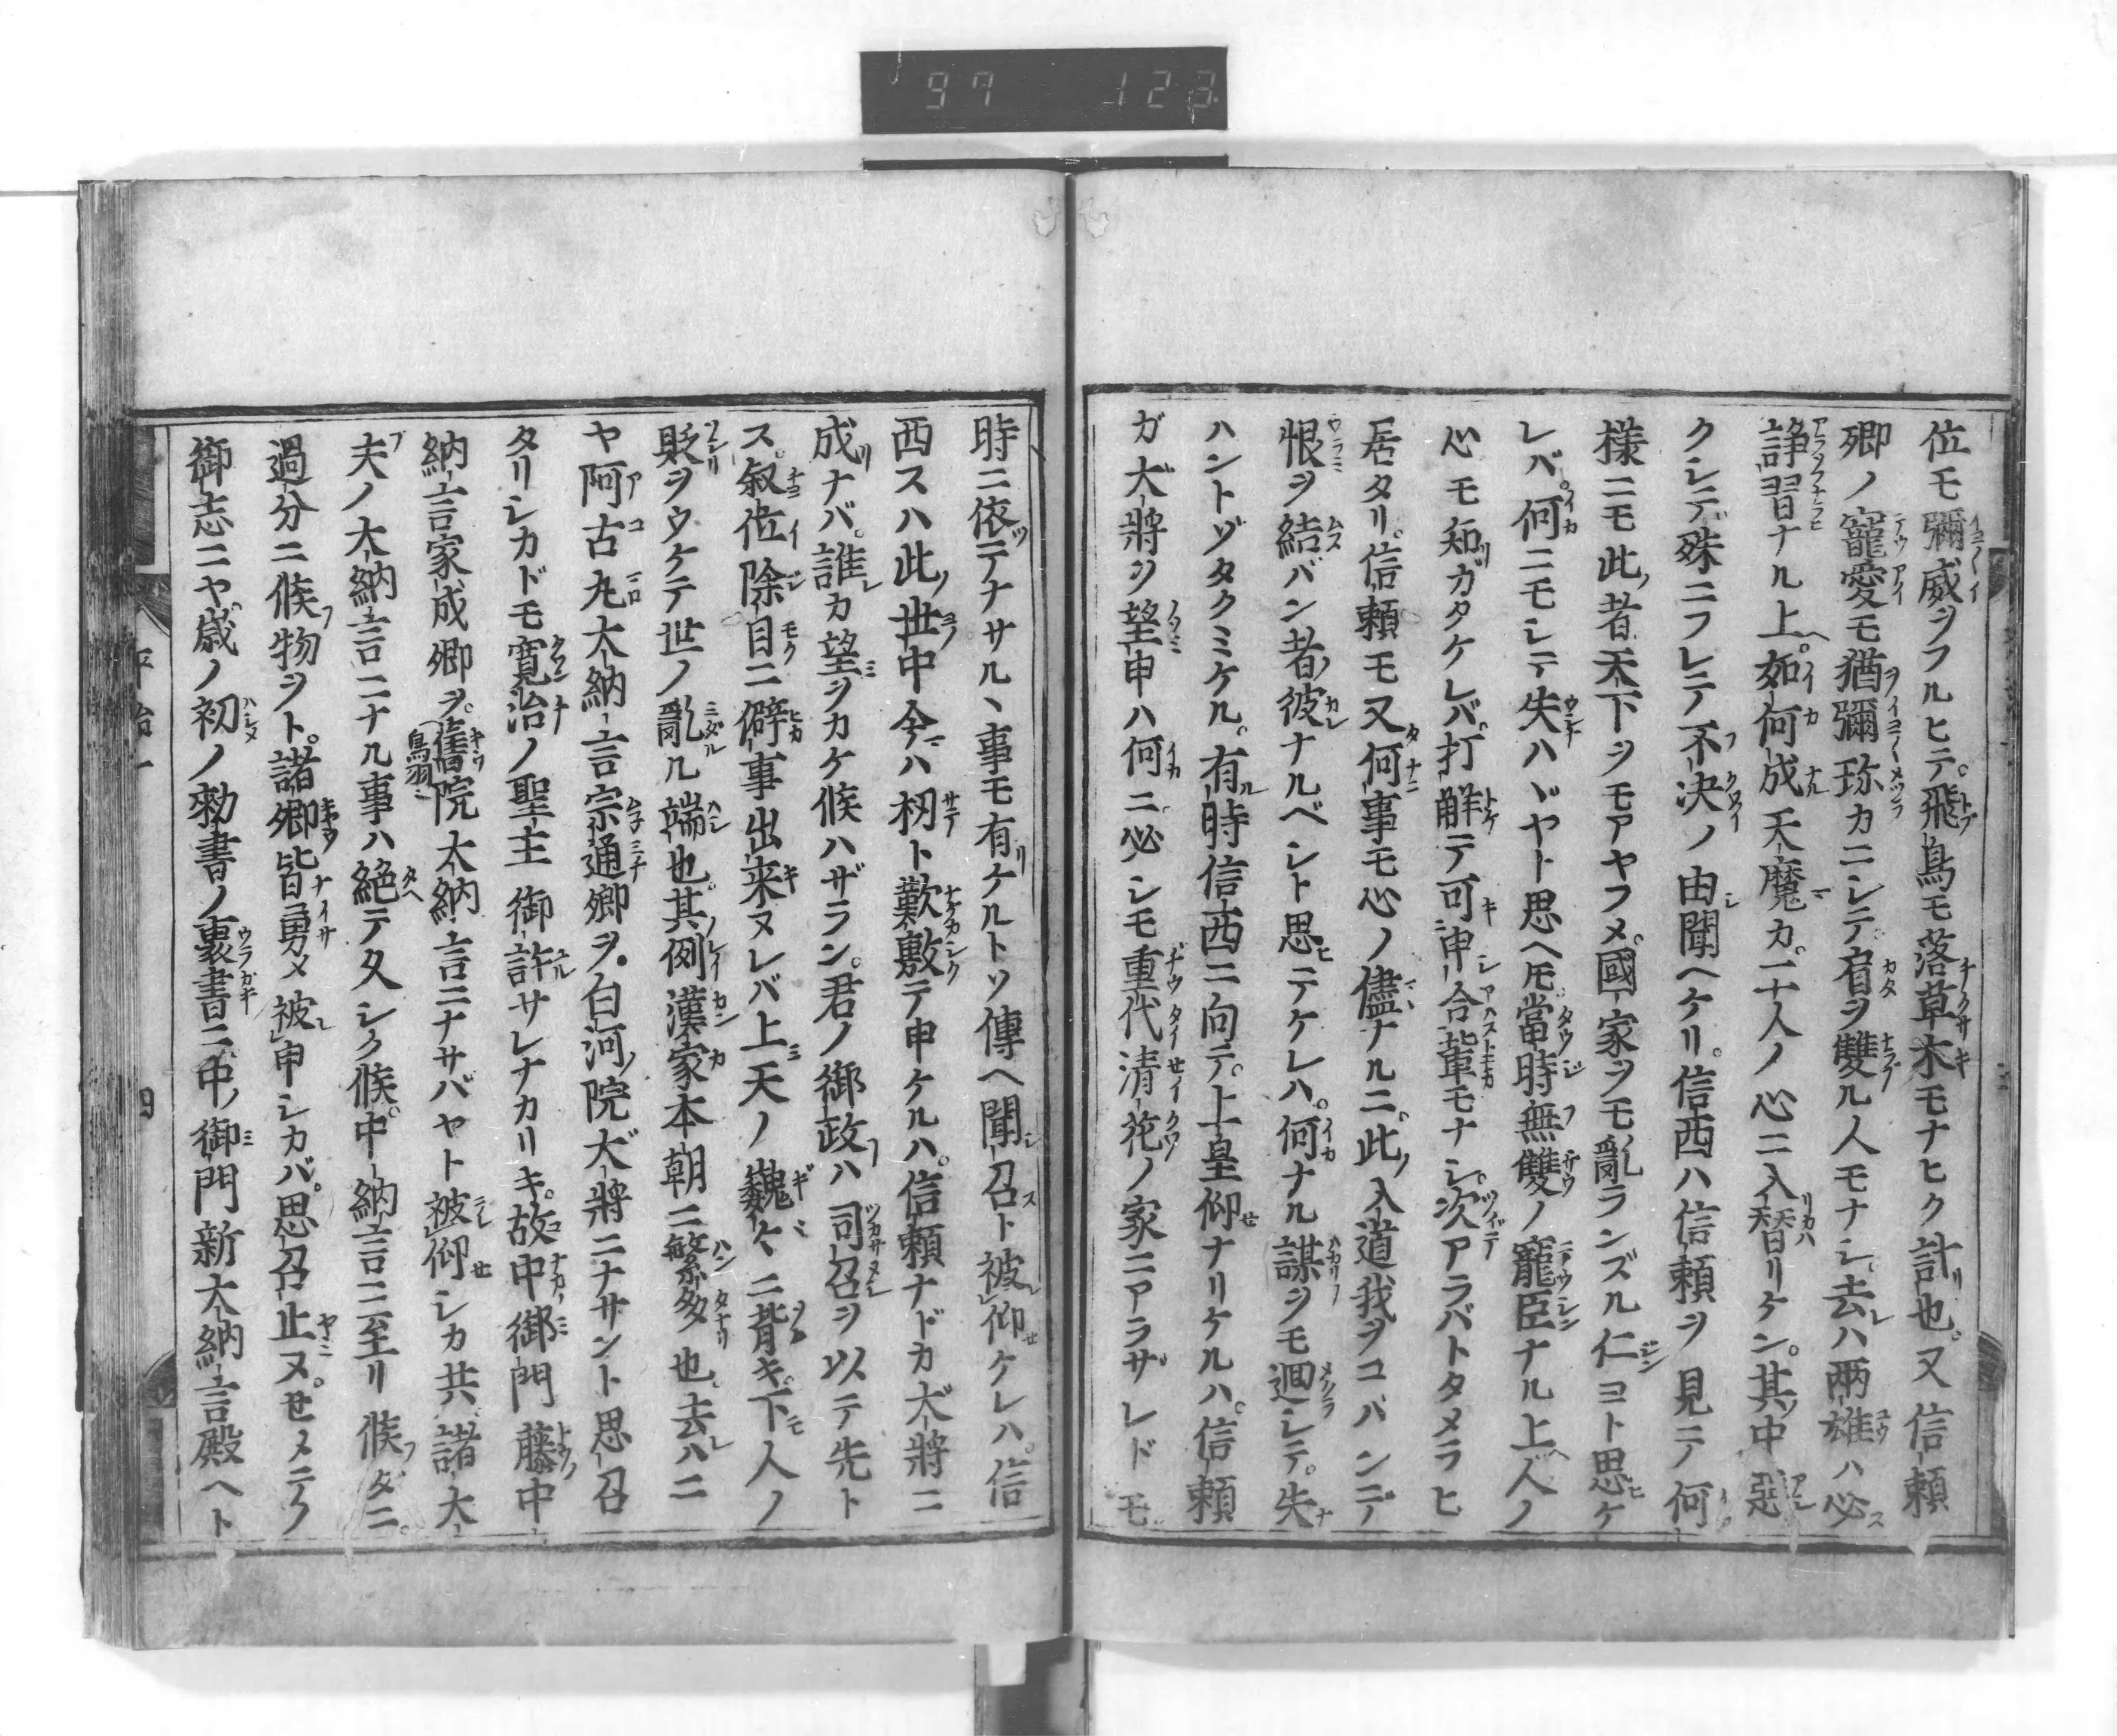 97 123
位モ彌威ヲフルヒテ。飛鳥モ落草木モナヒク計也。又信頼
卿ノ寵愛モ猶彌珍カニシテ肩ヲ雙ル人モナシ。去ハ兩雄ハ必
諍習ナル上。如何成天魔カ。二人ノ心ニ入替リケン。其中惡
クシテ殊ニフレテ不決ノ由聞ヘケリ。信西ハ信頼ヲ見テ何
樣ニモ此者天下ヲモアヤフメ。國家ヲモ亂ランズル仁ヨト思ケ
レバ。何ニモシテ失ハヾヤト思ヘ𪜈當時無雙ノ寵臣ナル上人ノ
心モ知ガタケレバ。打解テ可申合輩モナシ。次アラバトタメラヒ
居タリ。信頼モ又何事モ心ノ儘ナルニ。此入道我ヲコバンデ
恨ヲ結バン者彼ナルベシト思ニテケレハ。何ナル謀ヲモ廻シテ。失
ハントゾタクミケル。有時信西ニ向テ。上皇仰ナリケルハ。信頼
ガ大將ヲ望申ハ何ニ。必シモ重代清花ノ家ニアラザレドモ
時ニ依テナサルヽ事モ有ケルトソ傳ヘ聞召ト被仰ケレハ。信
西スハ此世中今ハ扨ト歎敷テ申ケルハ。信頼ナドカ大將ニ
成ナバ。誰カ望ヲカケ候ハザラン。君ノ御政ハ司召ヲ以テ先ト
ス。叙位除目ニ僻事出来ヌレバ上天ノ巍々ニ背キ。下人ノ
貶ヲウケテ世ノ亂ル端也。其例漢家本朝ニ繁多也。去ハニ
ヤ阿古丸大納言宗通卿ヲ。白河院大將ニナサント思召
タリシカドモ寛治ノ聖主御許サレナカリキ。故中御門藤中
納言家成卿ヲ。舊院鳥羽大納言ニナサバヤト被仰シカ共諸大
夫ノ大納言ニナル事ハ絶テ久シク候。中納言ニ至リ候ダニ。
過分ニ候物ヲト。諸卿皆勇メ被申シカバ。思召止ヌ。セメテノ
御志ニヤ歳ノ初ノ勅書ノ裏書ニ。中御門新大納言殿ヘト
平治一
四